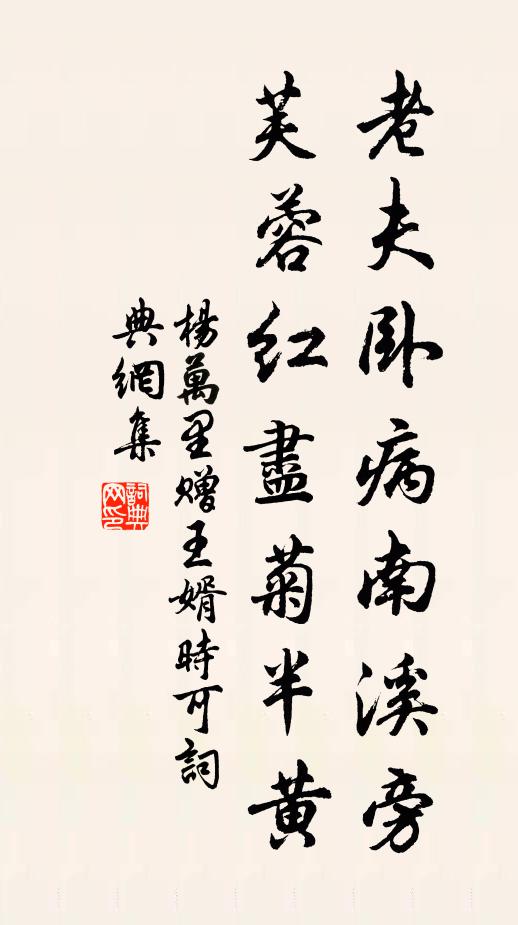 老夫卧病南溪旁
芙蓉红盡菊半黄
楊萬里贈王婿時可詞
典網集
詞典网印